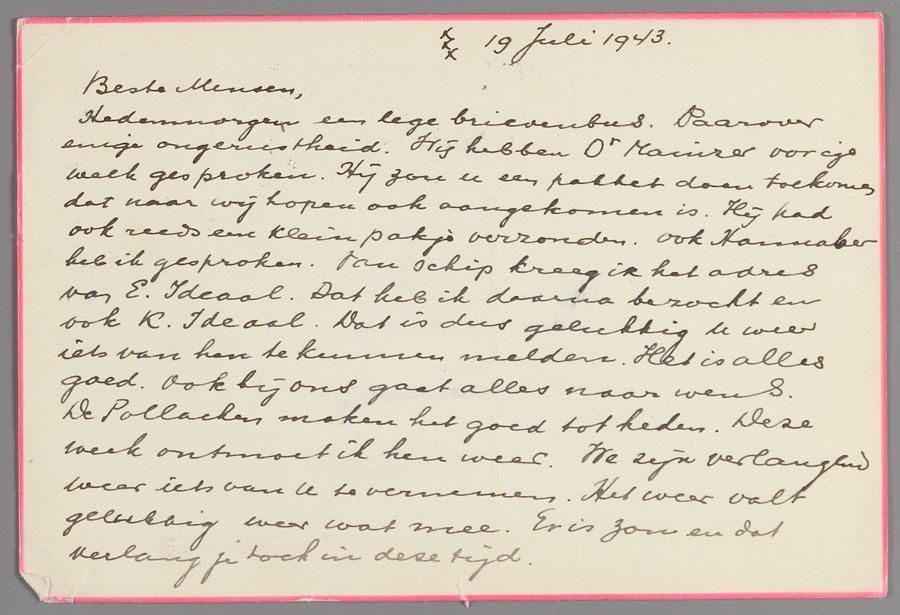 xxx 19 Juli 1943.
Beste Mensen,
Hedenmorgen een lege brievenbus. Daarover
enige ongerustheid. Wij hebben Dr Mainzer vorige
week gesproken. Hij zou u een pakket doen toekomen
dat naar wij hopen ook aangekomen is. Hij had
ook reeds een klein pakje verzonden. Ook Hannaber
heb ik gesproken. Van Schip kreeg ik het adres
van E. Ideaal. Dat heb ik daarna bezocht en
ook K. Ideaal. Dat is dus gelukkig u weer
iets van hen te kunnen melden. Het is alles
goed. Ook bij ons gaat alles naar wens.
De Pollacken maken het goed tot heden. Deze
week ontmoet ik hen weer. We zijn verlangend
weer iets van U te vernemen. Het weer valt
gelukkig weer wat mee. Er is zon en dat
verlang je toch in deze tijd.